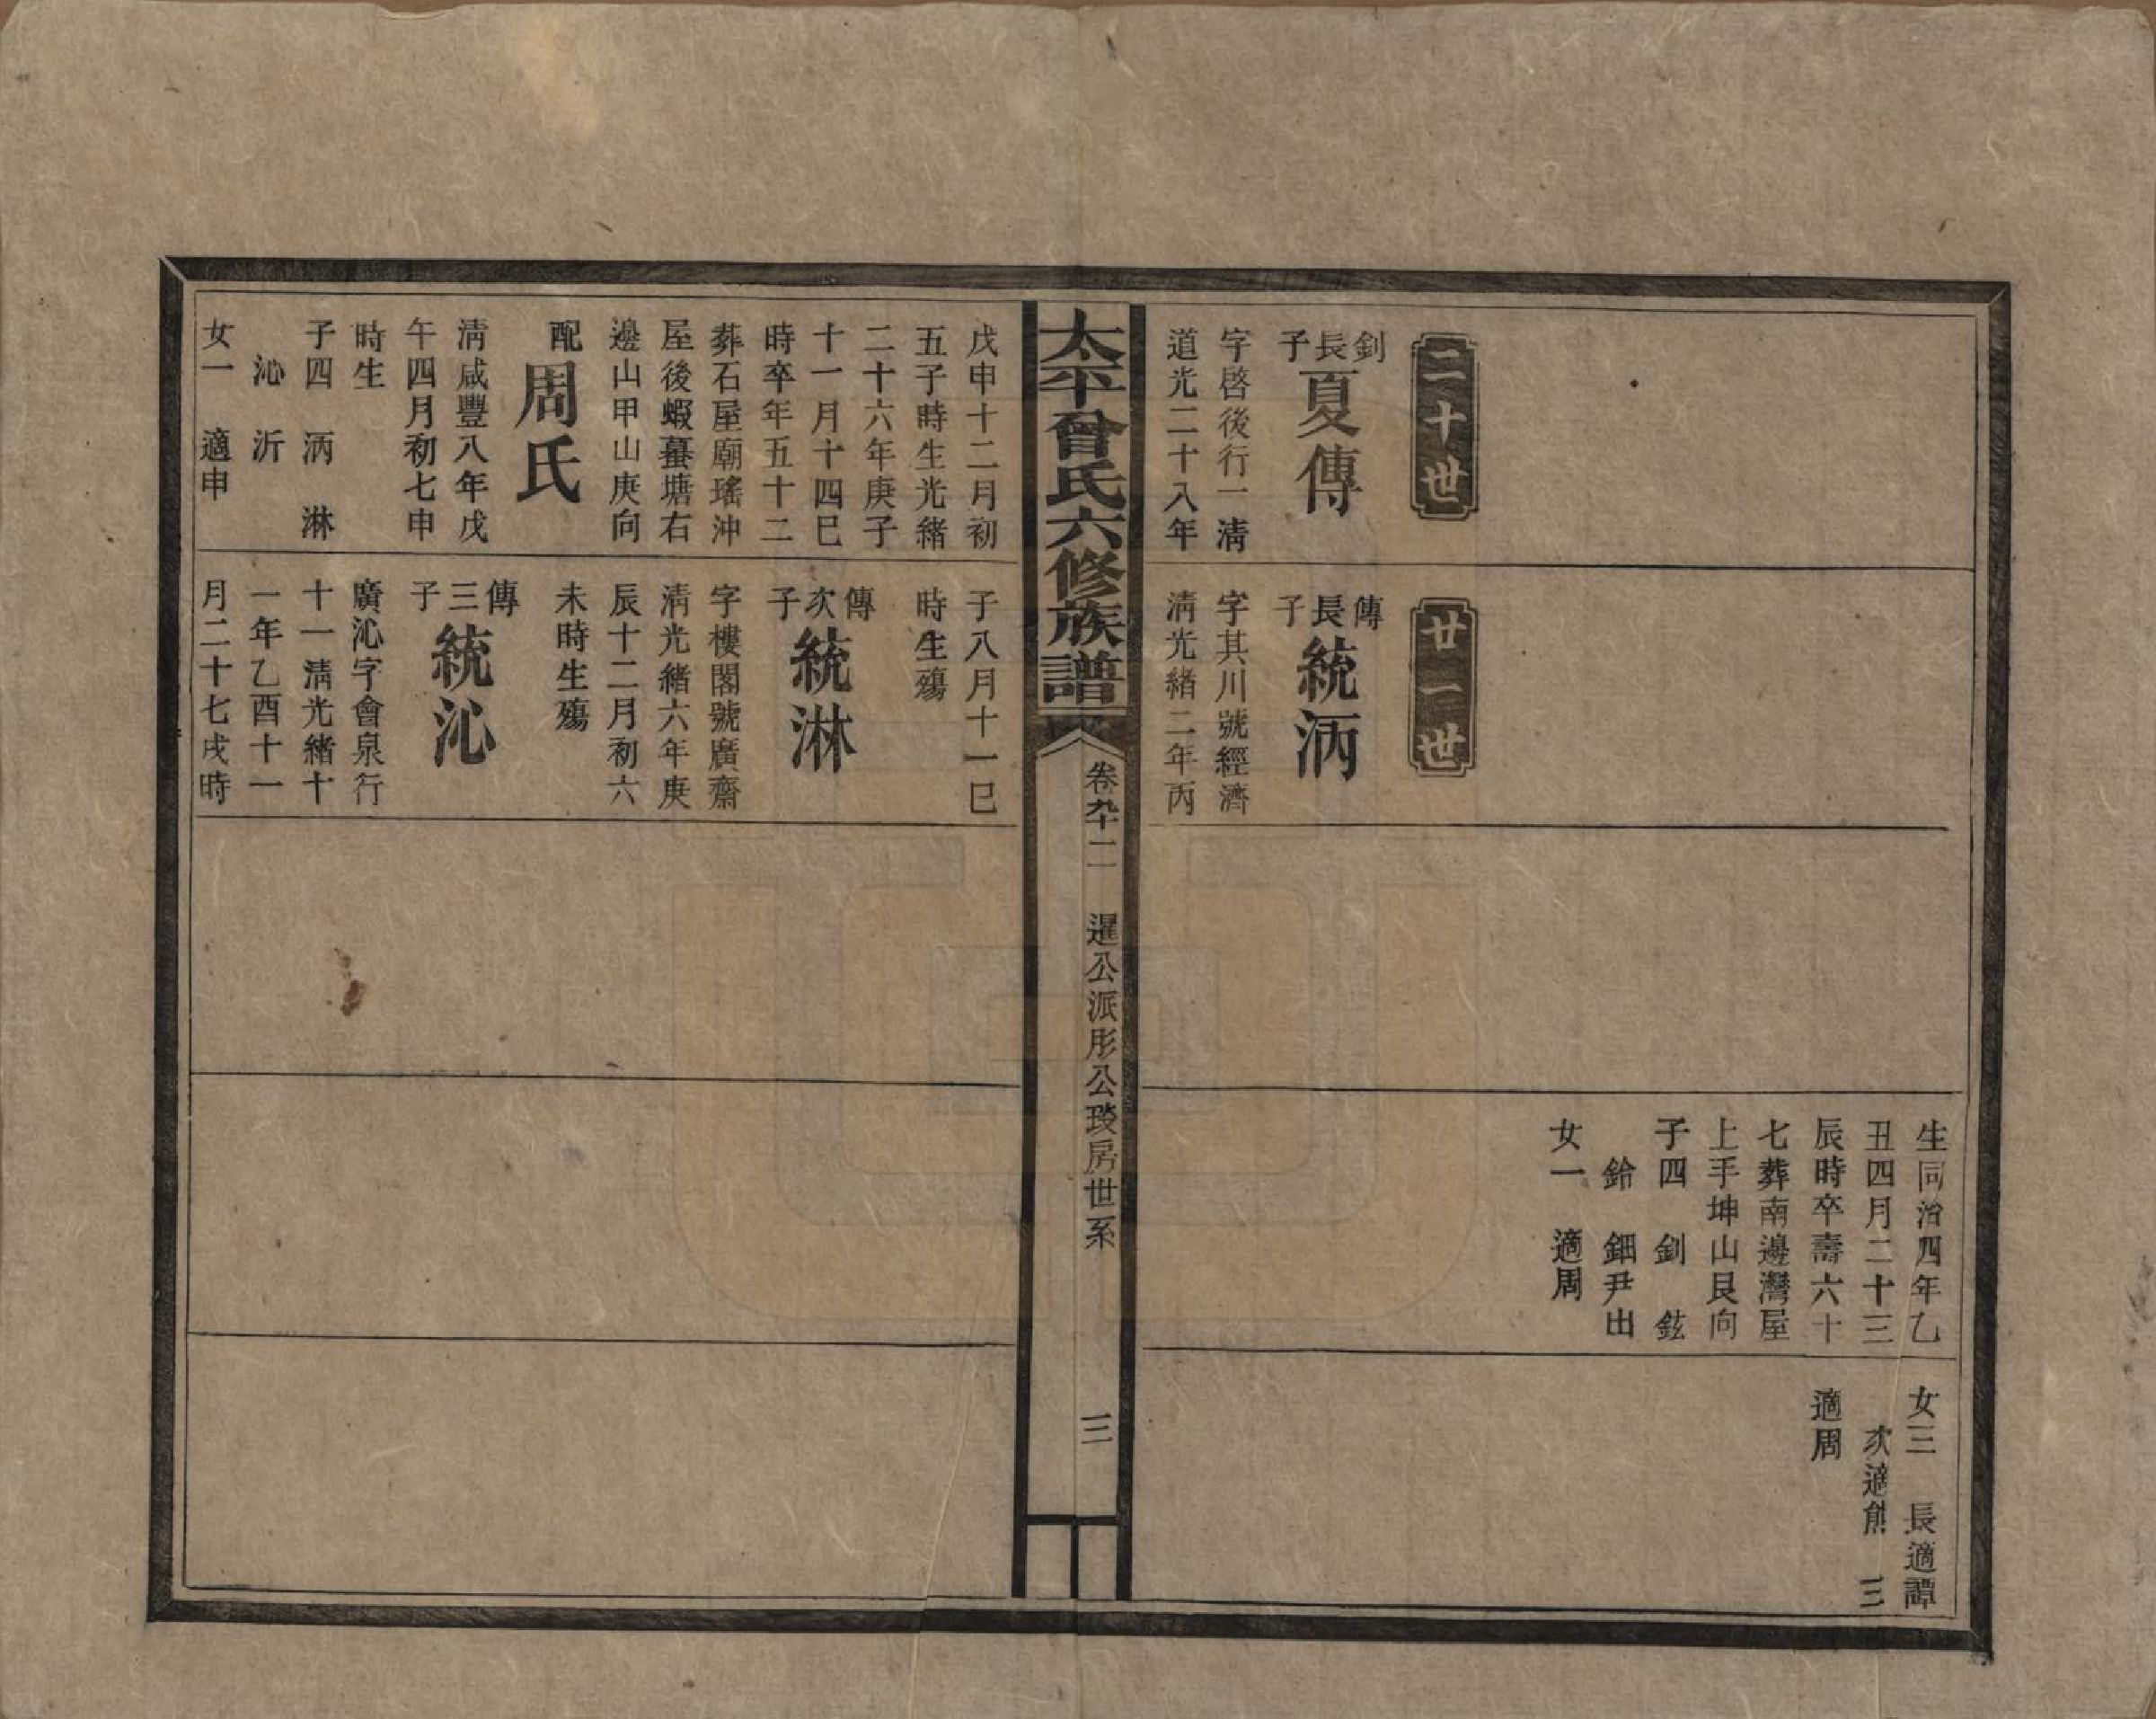 生同治四年乙
丑四月二十三
辰時卒壽六十
七葬南邊灣屋
上手坤山艮向
子四 釗 鉉
鈴 鈿尹出
女一 適周
女三 長適譚
次適熊 三
適周
二十世
釗長子夏傳
字啓後行一清
道光二十八年
廿一世
傳長子統浻
字其川號經濟
清光緒二年丙
太平曾氏六修族譜
卷九十二 暹公派彤公琰房世系
三
戊申十二月初
五子時生光緒
二十六年庚子
十一月十四巳
時卒年五十二
葬石屋廟瑤沖
屋後蝦蟇塘右
邊山甲山庚向
配周氏
清咸豐八年戊
午四月初七申
時生
子四 浻 淋
沁 沂
女一 適申
子八月十一巳
時生殤
傳次子統淋
字樓閣號廣齋
清光緒六年庚
辰十二月初六
未時生殤
傳三子統沁
廣沁字會泉行
十一清光緒十
一年乙酉十一
月二十七戌時